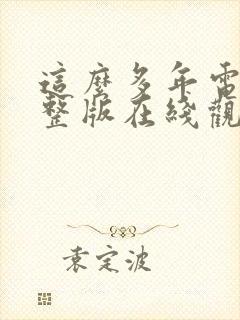 這麼多年電
整版在綫觀
袁定波